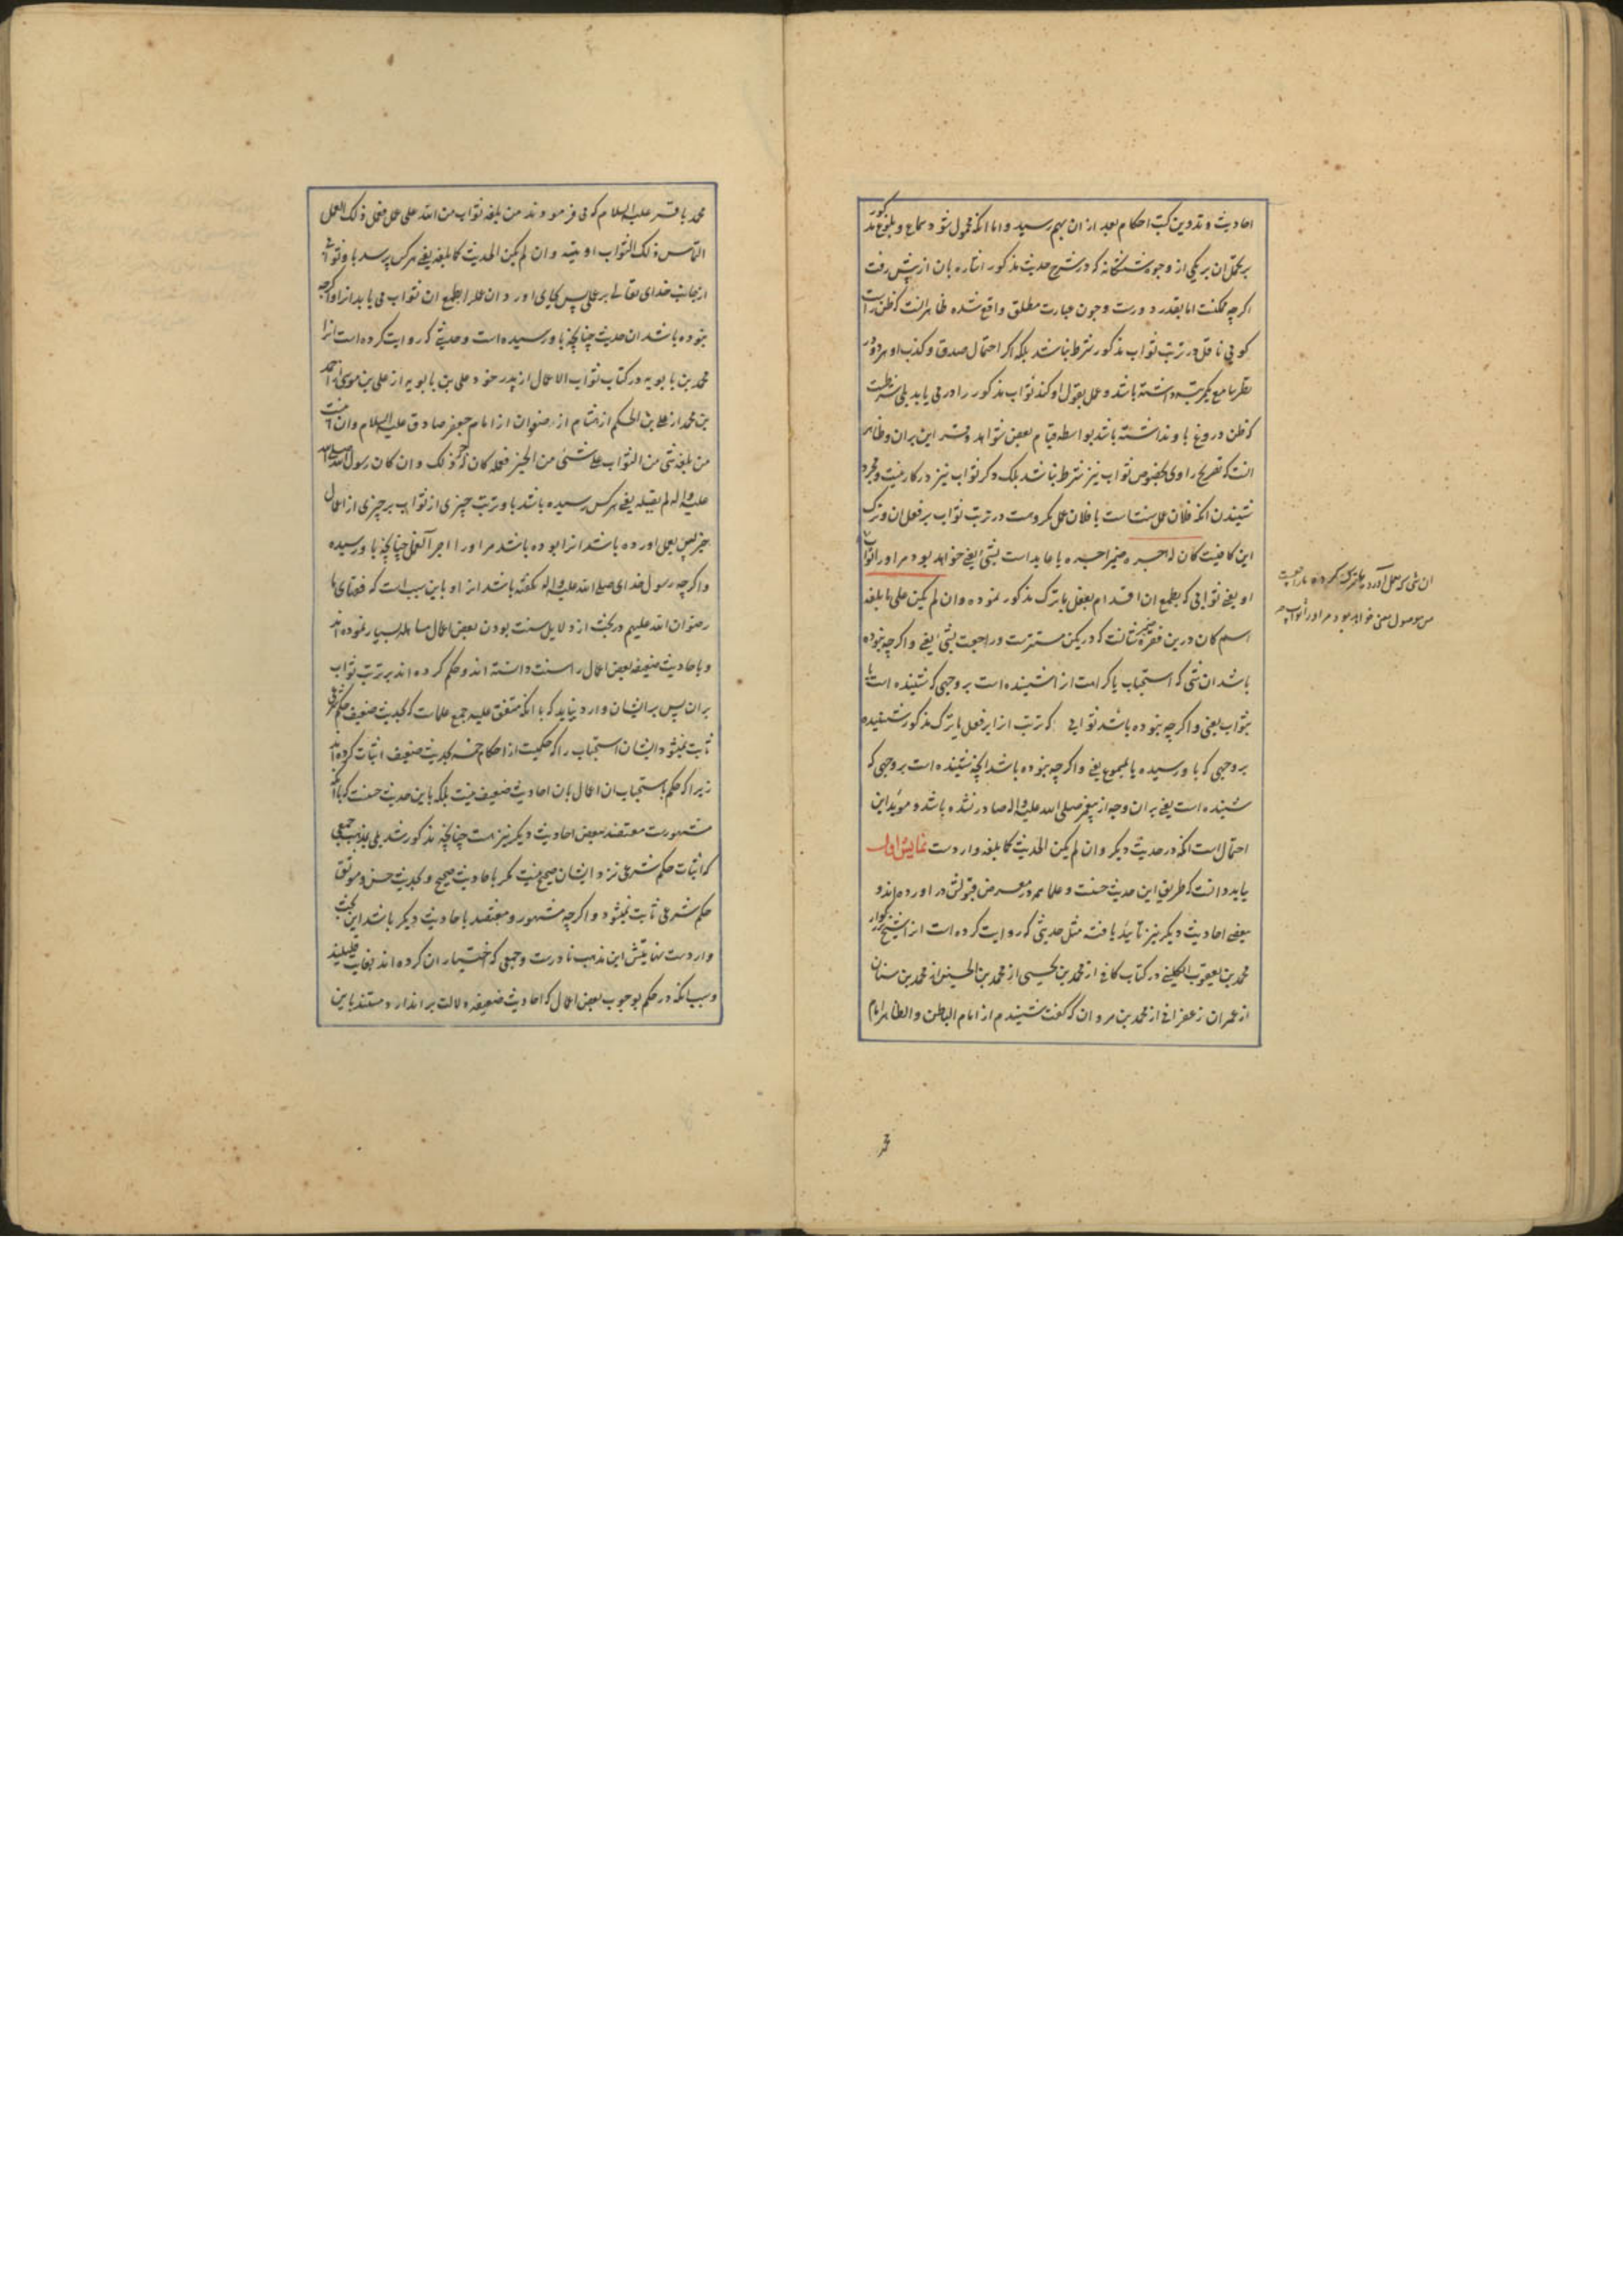 احادیث و تدوین کتب احکام بعد از ان بهم رسید و اما انکه محمول شود سماع و بلوغ مذکور
بر یکی از وجوه ششکانه که در شرح حدیث مذکور اشاره بان از پیش رفت
اکرچه ممکنست اما بقدر دورست و چون عبارت مطلق واقع شده ظاهر انست که ظن راست
کویی ناقل در ترتب ثواب مذکور شرط نباشد بلکه اکر احتمال صدق و کذب او هر دو در
نظر سامع یکمرتبه داشته باشد و عمل بقول او کند ثواب مذکور را در می یابد بلی شرطست
که ظن دروغ باو نداشته باشد بواسطه قیام بعض شواهد و قراین بران و ظاهر
انست که تصریح راوی بخصوص ثواب نیز شرط نباشد بلکه ذکر ثواب نیز در کار نیست و مجرد
شنیدن انکه فلان عمل سنتست یا فلان عمل مکروهست در ترتب ثواب بر فعل ان و ترک
این کافیست کان له اجره ضمیر اجره یا عایدست بشئ یعنی خواهد بود مر او را ثواب
او یعنی ثوابی که بطمع ان اقدام بفعل یا ترک مذکور نموده وان لم یکن علی ما بلغه
اسم کان درین فقره ضمیر شانست که در یکن مستترست و راجعست بشئ یعنی و اکرچه نبوده
باشد ان شئی که استحباب یا کراهت از شنیده است بر وجهی که شنیده است یا
بثواب یعنی و اکرچه نبوده باشد ثوابی که ترتب انرا بر فعل یا ترک مذکور شنیده
بر وجهی که باو رسیده یا بمجموع یعنی و اکرچه نبوده باشد انچه شنیده است بر وجهی که
شنیده است یعنی بر ان وجه از پیغمبر صلی الله علیه واله صادر نشده باشد و موید این
احتمال است انکه در حدیث دیکر وان لم یکن الحدیث کما بلغه واردست نمایش اول
باید دانست که طریق این حدیث حسنست و علما همه در معرض قبولش در اورده اند و
ببعضی احادیث دیکر نیز تایید یافته مثل حدیثی که روایت کرده است انرا شیخ بزرکوار
محمد بن یعقوب الکلینی در کتاب کافی از محمد بن یحیی از محمد بن الحسین از محمد بن سنان
از عمران زعفرانی از محمد بن مروان که کفت شنیدم از امام الباطن والظاهر امام
ان شی که بعمل آورده یا ترک کرده یا راجعست
من موصول یعنی خواهد بود مر او را ثواب
محمد باقر علیه السلام که می فرمودند من بلغه ثواب من الله علی عمل فعمل ذلک العمل
التماس ذلک الثواب اوتیه وان لم یکن الحدیث کما بلغه یعنی هر کس برسد باو ثوابی
از جانب خدای تعالی بر عملی پس بجای اورد ان عمل را بطمع ان ثواب می یابد انرا و اکرچه
نبوده باشد ان حدیث چنانچه باو رسیده است و حدیثی که روایت کرده است انرا
محمد بن بابویه در کتاب ثواب الاعمال از پدر خود علی بن بابویه از علی بن موسی از احمد
بن محمد از علی بن الحکم از هشام از صفوان از امام جعفر صادق علیه السلام وان اینست
من بلغه شئ من الثواب علی شئ من الخیر فعمله کان له اجر ذلک وان کان رسول الله صلی الله
علیه واله لم یقله یعنی هر کس رسیده باشد باو ترتب چیزی از ثواب بر چیزی از اعمال
خیر پس بعمل اورده باشد انرا بوده باشد مر او را اجر آنعمل چنانچه باو رسیده
و اکرچه رسول خدای صلی الله علیه واله نکفته باشد انرا و باین سبب است که فقهای ما
رضوان الله علیهم در بحث از دلایل سنت بودن بعض اعمال مساهله بسیار نموده اند
و باحادیث ضعیفه بعض اعمال را سنت دانسته اند و حکم کرده اند بر ترتب ثواب
بران پس بر ایشان وارد نیاید که با انکه متفق علیه جمیع علماست که بحدیث ضعیف حکم شرعی
ثابت نمیشود ایشان استحباب را که حکمیست از احکام خمسه بحدیث ضعیف اثبات کرده اند
زیرا که حکم باستحباب ان اعمال بان احادیث ضعیف نیست بلکه باین حدیث حسنست که با انکه
مشهورست معتضد ببعض احادیث دیکر نیز هست چنانچه مذکور شد بلی بمذهب جمعی
که اثبات حکم شرعی نزد ایشان صحیح نیست مکر باحادیث صحیح و بحدیث حسن و موثق
حکم شرعی ثابت نمیشود و اکرچه مشهور و معتضد باحادیث دیکر باشد این بحث
واردست نهایتش این مذهب نادرست و جمعی که اختیار ان کرده اند بغایت قلیلند
و سبب انکه در حکم بوجوب بعض اعمال که احادیث ضعیفه دلالت بر ان دارد مستند باین